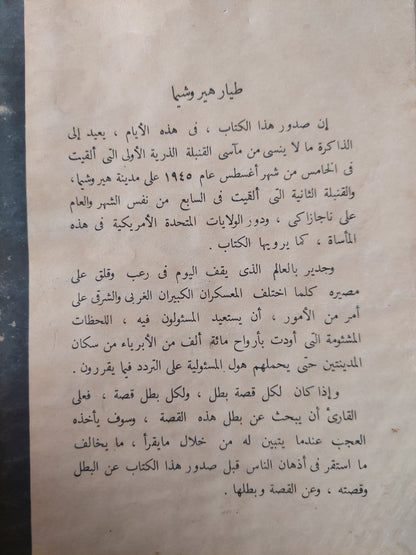 طيار هيروشيما
إن صدور هذا الكتاب ، فى هذه الأيام ، يعيد إلى
الذاكرة ما لا ينسى من مآسى القنبلة الذرية الأولى التى ألقيت
فى الخامس من شهر أغسطس عام ١٩٤٥ على مدينة هيروشيما،
والقنبلة الثانية التى ألقيت فى السابع من نفس الشهر والعام
على ناجازاكى ، ودور الولايات المتحدة الأمريكية فى هذه
المأساة ، كما يرويها الكتاب .
وجدير بالعالم الذى يقف اليوم فى رعب وقلق على
مصيره كلما اختلف المعسكران الكبيران الغربى والشرقى على
أمر من الأمور ، أن يستعيد المسئولون فيه ، اللحظات
المشئومة التى أودت بأرواح مائة ألف من الأبرياء من سكان
المدينتين حتى يحملهم هول المسئولية على التردد فيما يقررون .
وإذا كان لكل قصة بطل ، ولكل بطل قصة ، فعلى
القارئ أن يبحث عن بطل هذه القصة ، وسوف يأخذه
العجب عندما يتبين له من خلال مايقرأ ، ما يخالف
ما استقر فى أذهان الناس قبل صدور هذا الكتاب عن البطل
وقصته ، وعن القصة وبطلها .